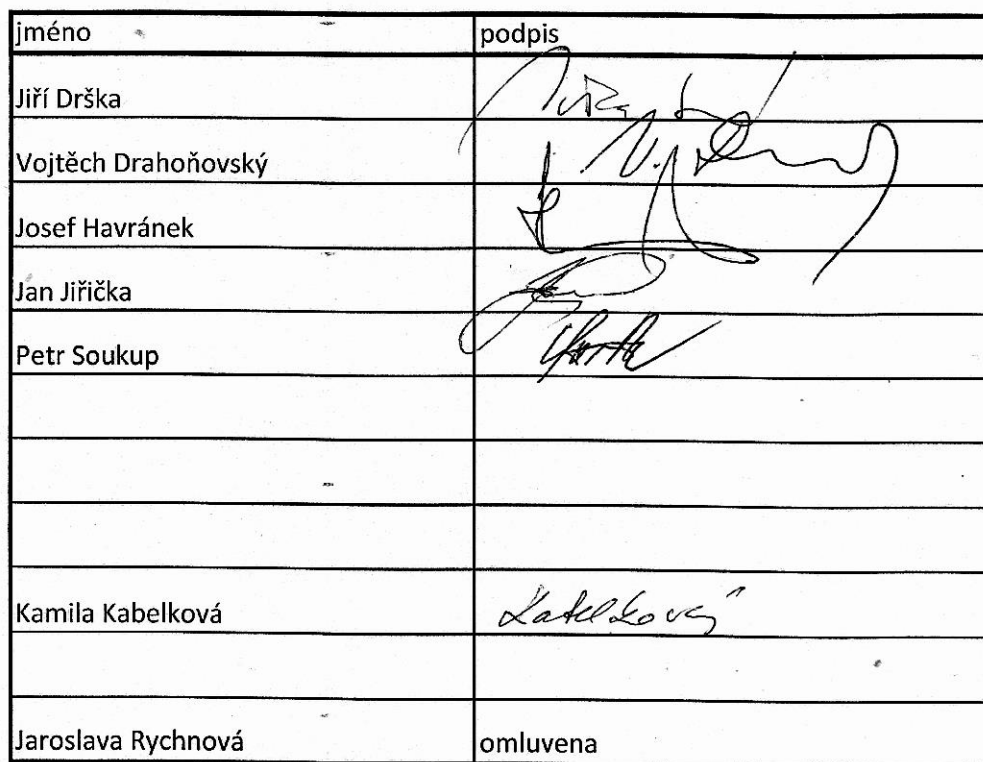 jméno podpis
Jiří Drška
Vojtěch Drahoňovský
Josef Havránek
Jan Jiřička
Petr Soukup
Kamila Kabelková Kabelková
Jaroslava Rychnová omluvena